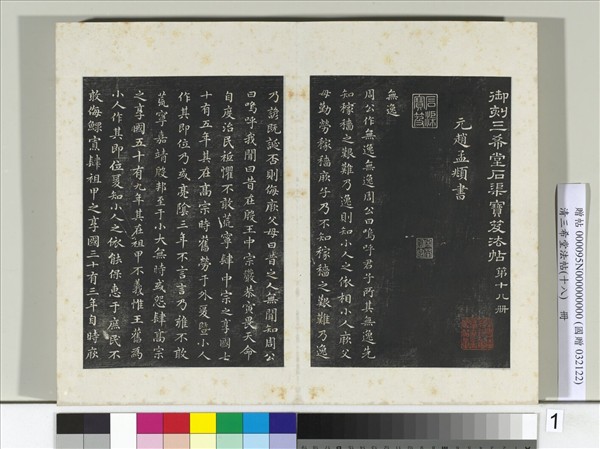 御刻三希堂石渠寶笈法帖 第十八冊
元趙孟頫書
石渠寶笈
無逸
周公作無逸無逸周公曰嗚呼君子所其無逸先
知稼穡之艱難乃逸則知小人之依相小人厥父
母勤勞稼穡厥子乃不知稼穡之艱難乃逸
乃諺既誕否則侮厥父母曰昔之人無聞知周公
曰嗚呼我聞曰昔在殷王中宗嚴恭寅畏天命
自度治民祗懼不敢荒寧肆中宗之享國七
十有五年其在高宗時舊勞于外爰暨小人
作其即位乃或亮陰三年不言言乃雍不敢
荒寧嘉靖殷邦至于小大無時或怨肆高宗
之享國五十有九年其在祖甲不義惟王舊為
小人作其即位爰知小人之依能保惠于庶民不
敢侮鰥寡肆祖甲之享國三十有三年自時厥
贈帖 000095N000000000 (國贈 032122)
清三希堂法帖(十八) 冊
1